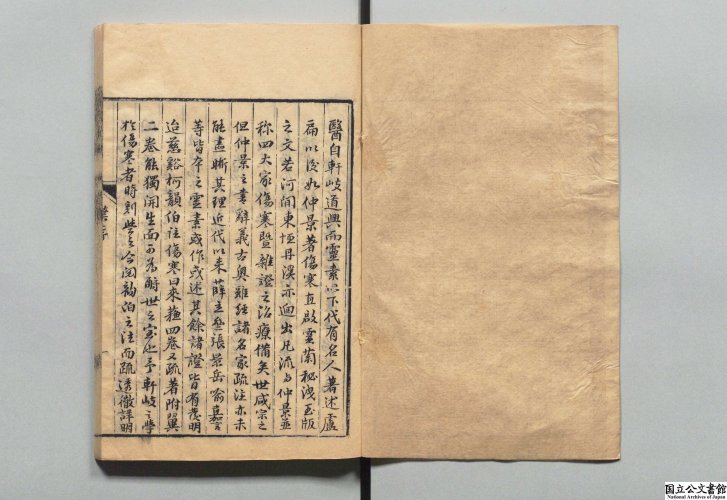 醫自軒岐道興而靈素以下代有名人著述盧
扁以後如仲景著傷寒直啟靈蘭秘洩玉版
之文若河間東恒丹溪亦迥出凡流与仲景並
称四大家傷寒暨雜證之治療備矣世咸宗之
但仲景之書辭義古奧雖經諸名家疏注亦未
能盡晰其理近代以来薛立齋張景岳喻嘉言
等皆本之靈素或作或述其餘諸證皆有發明
迨慈谿柯韻伯注傷寒曰來蘇四卷又疏著附翼
二卷能獨開生面可為世之寶也予軒岐之學
於傷寒者時刻之今閱韵伯之注而疏透徹詳明
葉序
国立公文書館
National Archives of Japan